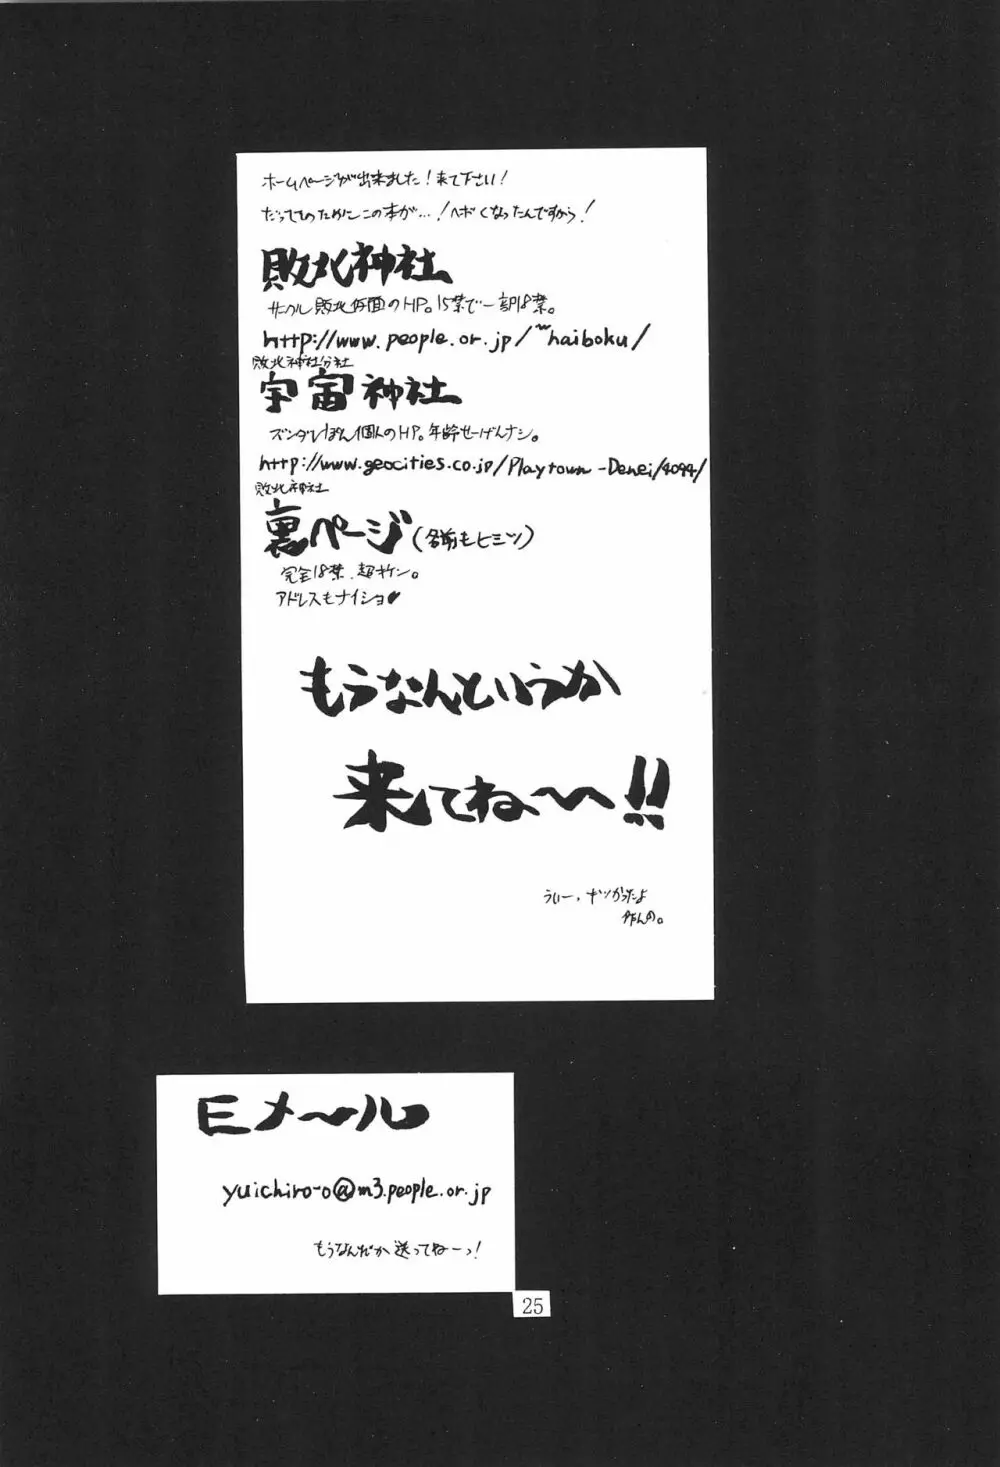 ホームページが出来ました！来て下さい！
だってそのためにこの本が…！ヘボくなったんですから！
敗北神社
サークル敗北仮面のHP。15禁で一部18禁。
http://www.people.or.jp/~haiboku/
敗北神社分社
宇宙神社
ズンダレぽん個人のHP。年齢せーげんナシ。
http://www.geocities.co.jp/Playtown-Denei/4094/
敗北神社
裏ページ(名前もヒミツ)
完全18禁、超キケン。
アドレスもナイショ♥
もうなんというか
来てね〜へ!!
うぃー、キツかったよ
作んの。
Eメ〜ル
yuichiro-o@m3.people.or.jp
もうなんだか送ってねーっ！
25